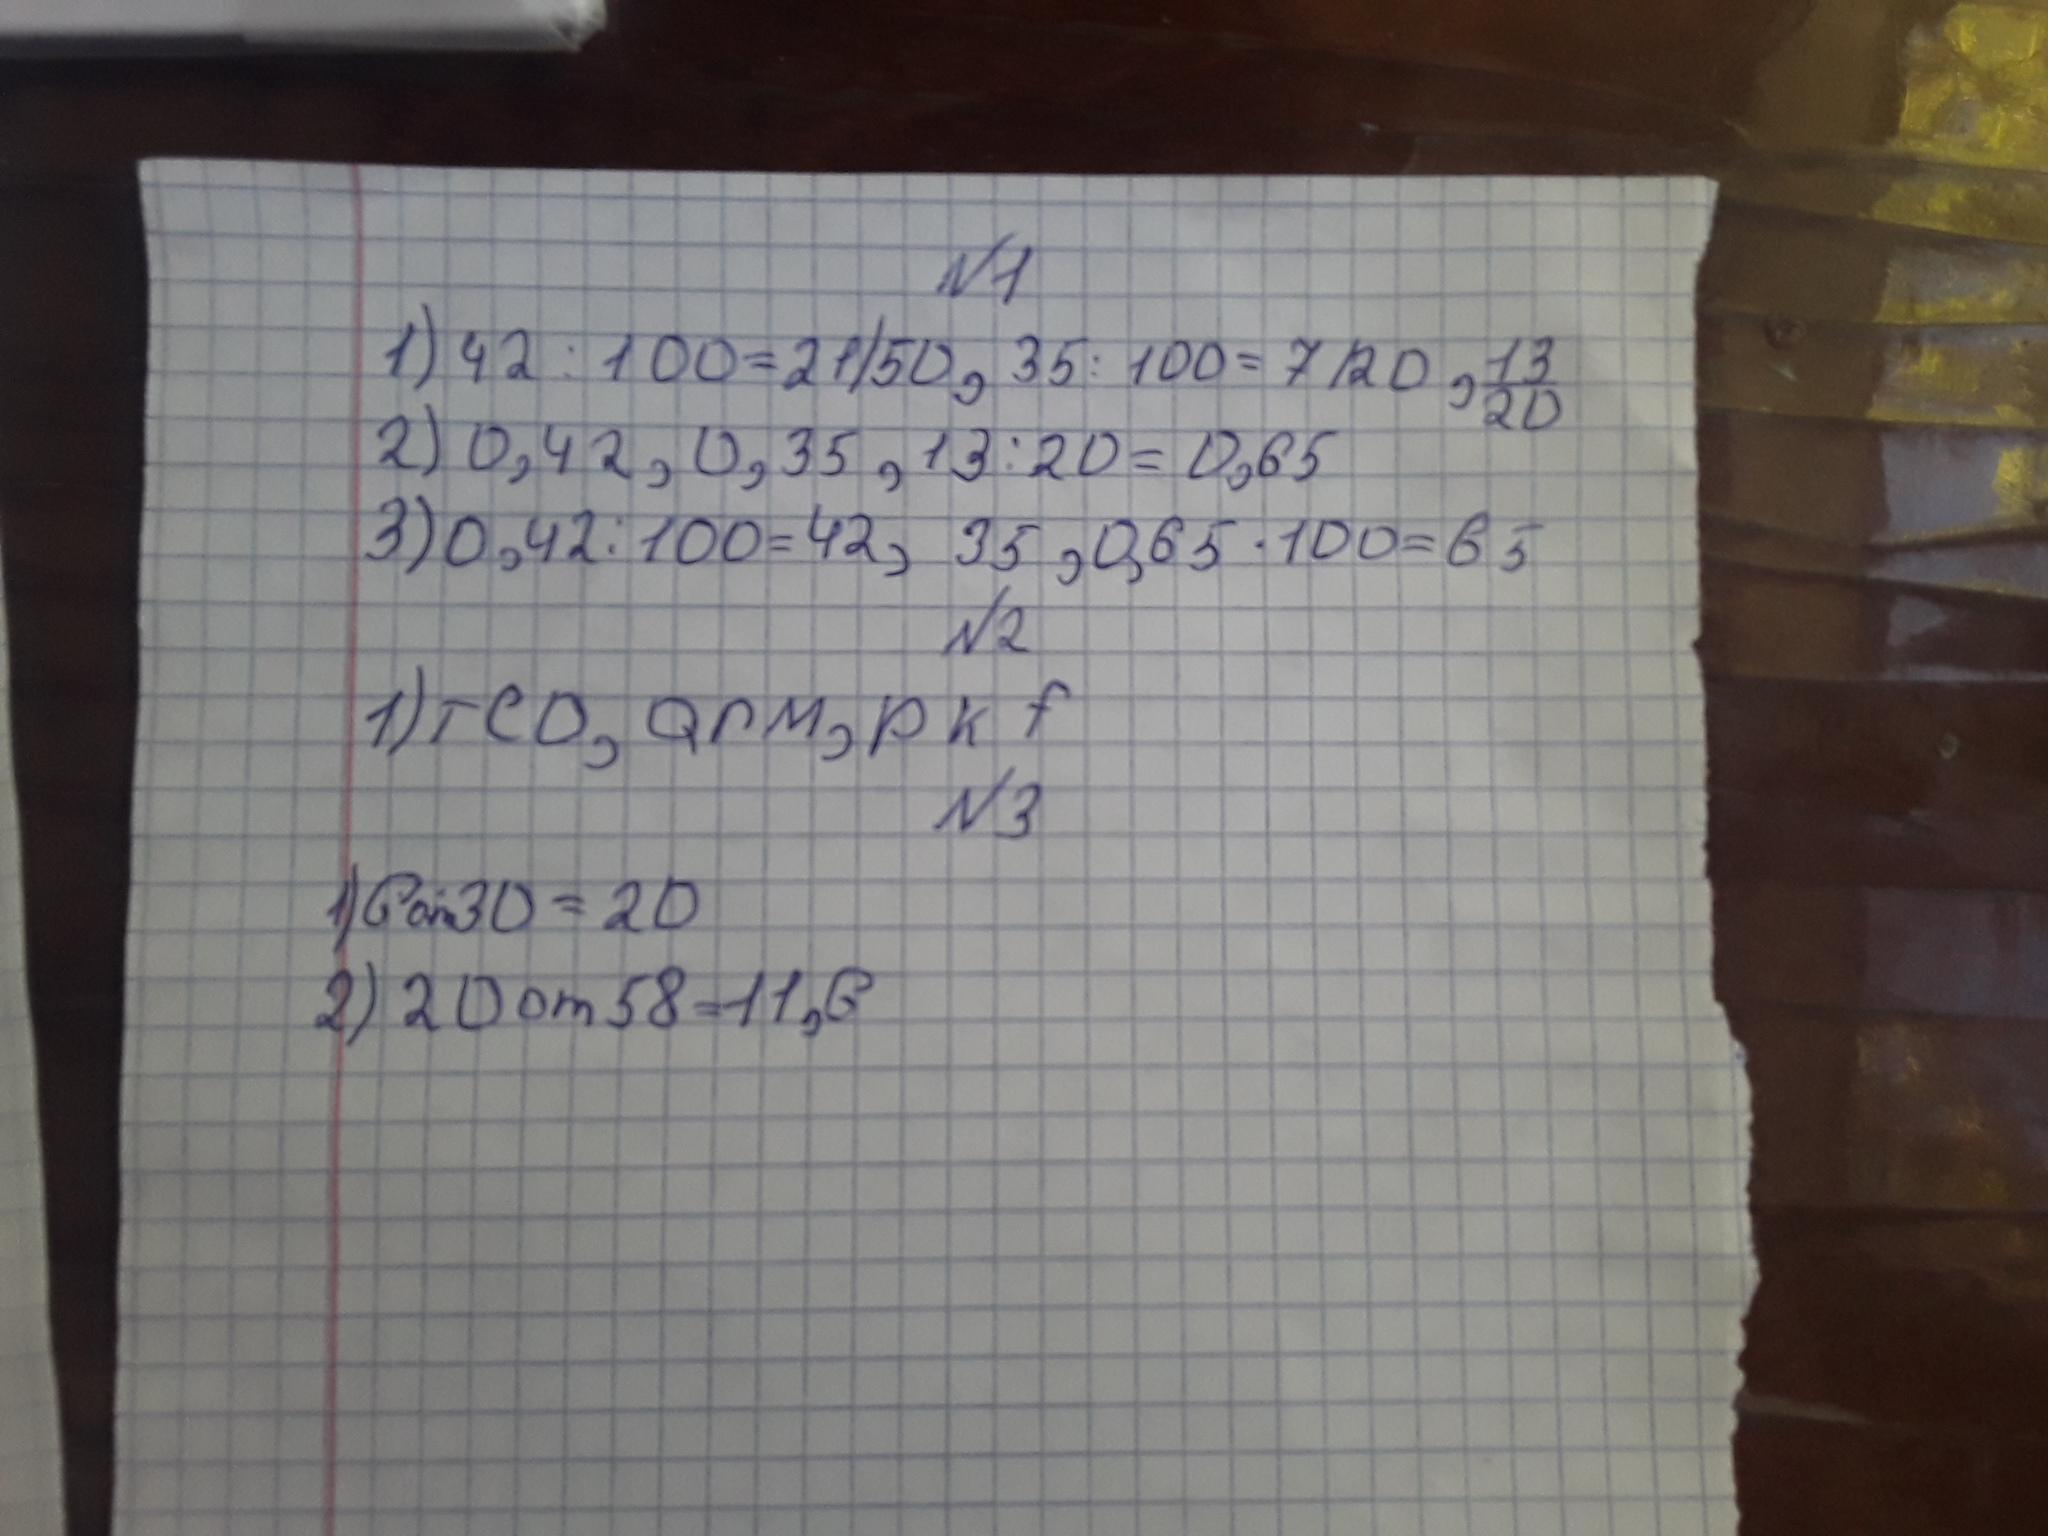 №1
1) 42 : 100 = 21/50, 35 : 100 = 7/20, 13/20
2) 0,42, 0,35, 13 : 20 = 0,65
3) 0,42 : 100 = 42, 35, 0,65 · 100 = 65
№2
1) TCO, QPM, PKF
№3
1) 6 от 30 = 20
2) 20 от 58 = 11,6